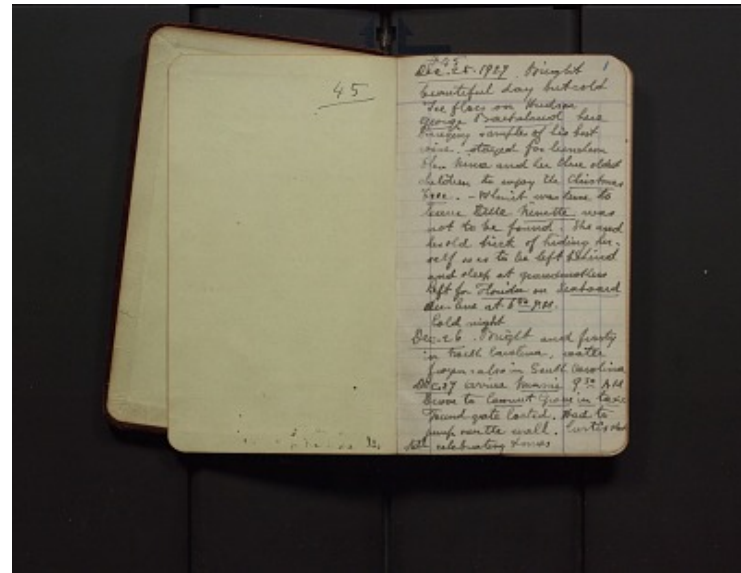 45
45
1
Dec. 25. 1927 Bright
beautiful day but cold
Ice floes on Hudson
George here
Bringing samples of his best
wine. stayed for luncheon
Nina and her three oldest
children to enjoy the Christmas
tree. - When it was time to
leave little Ninette was
not to be found. She used
her old trick of hiding her-
self so as to be left behind
and sleep at grandmothers
left for Florida on Seaboard
air line at 6 30 P.M.
Cold night
Dec. 26. Bright and frosty
in North Carolina, water
frozen also in South Carolina
Dec. 27 arrive Miami 9 30 A.M
Drove to Cocoanut Grove in taxi
Found gate locked. Had to
jump over the wall. Curtis
still celebrating Xmas